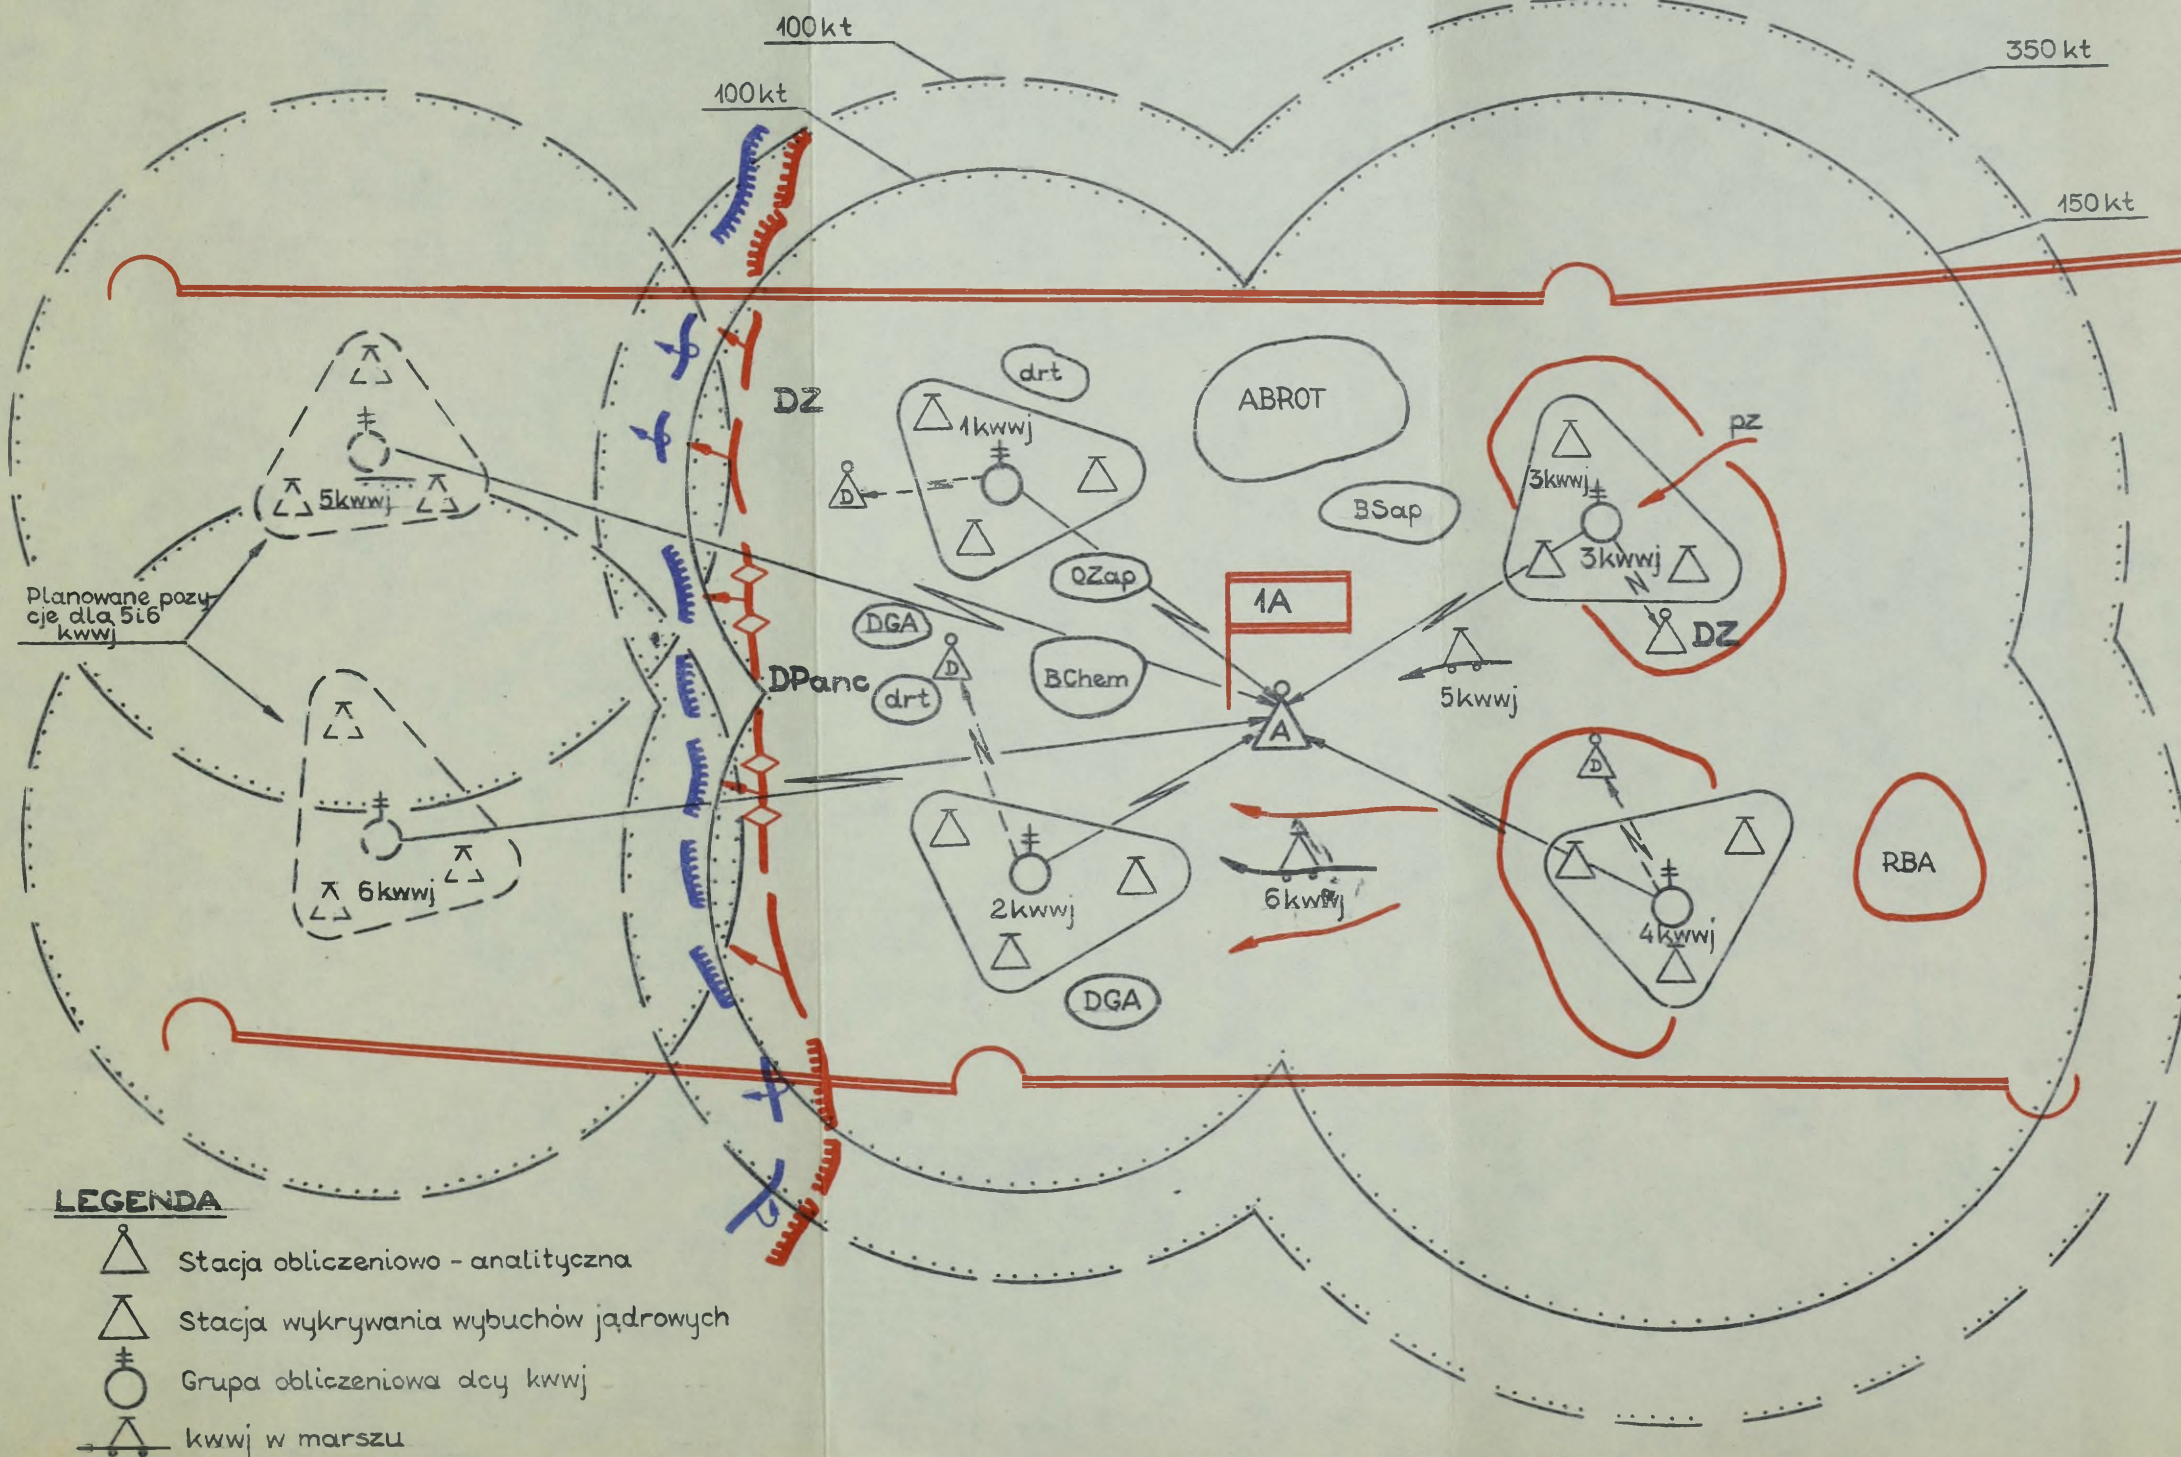 100kt
350kt
100kt
150kt
DZ
drt
1kwwj
D
ABROT
BSap
pz
3kwwj
3kwwj
5kwwj
OZap
1A
DGA
D
DZ
Planowane pozy-
cje dla 5i6
kwwj
DPanc
drt
BChem
5kwwj
A
D
6kwwj
2kwwj
6kwwj
RBA
4kwwj
DGA
LEGENDA
Stacja obliczeniowo - analityczna
Stacja wykrywania wybuchów jądrowych
Grupa obliczeniowa dcy kwwj
kwwj w marszu